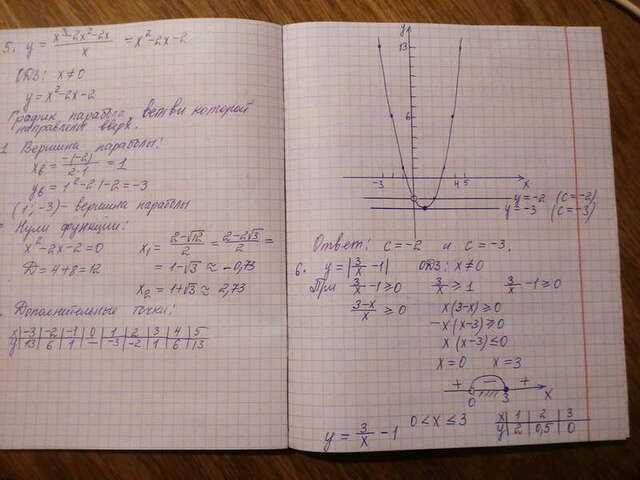 5. y = (x³-2x²-2x)/x = x²-2x-2
ОДЗ: x≠0
y = x²-2x-2
График парабола, ветви которой
направлены вверх.
1 Вершина параболы:
xв = -(-2)/(2·1) = 1
yв = 1²-2·1-2 = -3
(1; -3) - вершина параболы
Нули функции:
x²-2x-2=0
D = 4+8 = 12
x₁ = (2-√12)/2 = (2-2√3)/2 =
= 1-√3 ≈ -0,73
x₂ = 1+√3 ≈ 2,73
Дополнительные точки:
x -3 -2 -1 0 1 2 3 4 5
y 13 6 1 — -3 -2 1 6 13
y
13
6
-3 4 5 x
y=-2 (c=-2)
y=-3 (c=-3)
Ответ: c=-2 и c=-3.
6. y = |3/x - 1| ОДЗ: x≠0
При 3/x - 1 ≥ 0 3/x ≥ 1 3/x - 1 ≥ 0
(3-x)/x ≥ 0 x(3-x) ≥ 0
-x(x-3) ≥ 0
x(x-3) ≤ 0
x=0 x=3
+ - +
0 3 x
y = 3/x - 1 0 < x ≤ 3
x 1 2 3
y 2 0,5 0